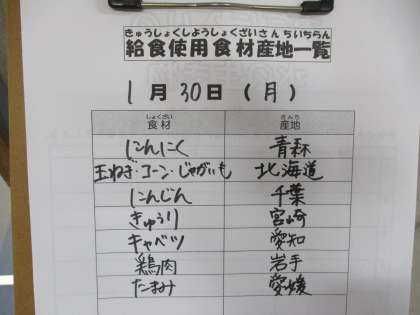 きゅうしょくしようしょくざいさんちいちらん
給食使用食材産地一覧
1月30日(月)
しょくざい さんち
食材 産地
にんにく 青森
玉ねぎ・コーン・じゃがいも 北海道
にんじん 千葉
きゅうり 宮崎
キャベツ 愛知
鶏肉 岩手
愛媛